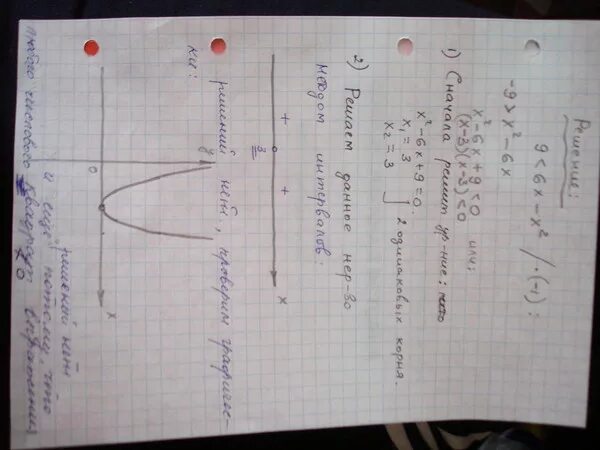 Решение:
9 < 6x − x² / · (−1) :
−9 > x² − 6x
x² − 6x + 9 < 0 или:
(x−3)(x−3) < 0
1) Сначала решим ур-ние:
x² − 6x + 9 = 0.
x₁ = 3
x₂ = 3
2 одинаковых корня.
2) Решаем данное нер-во
методом интервалов:
+ 3 + x
решений нет, проверим графичес-
ки:
y
0 x
решений нет
и ещё потому, что
любого числового квадрат выражения
≮ 0